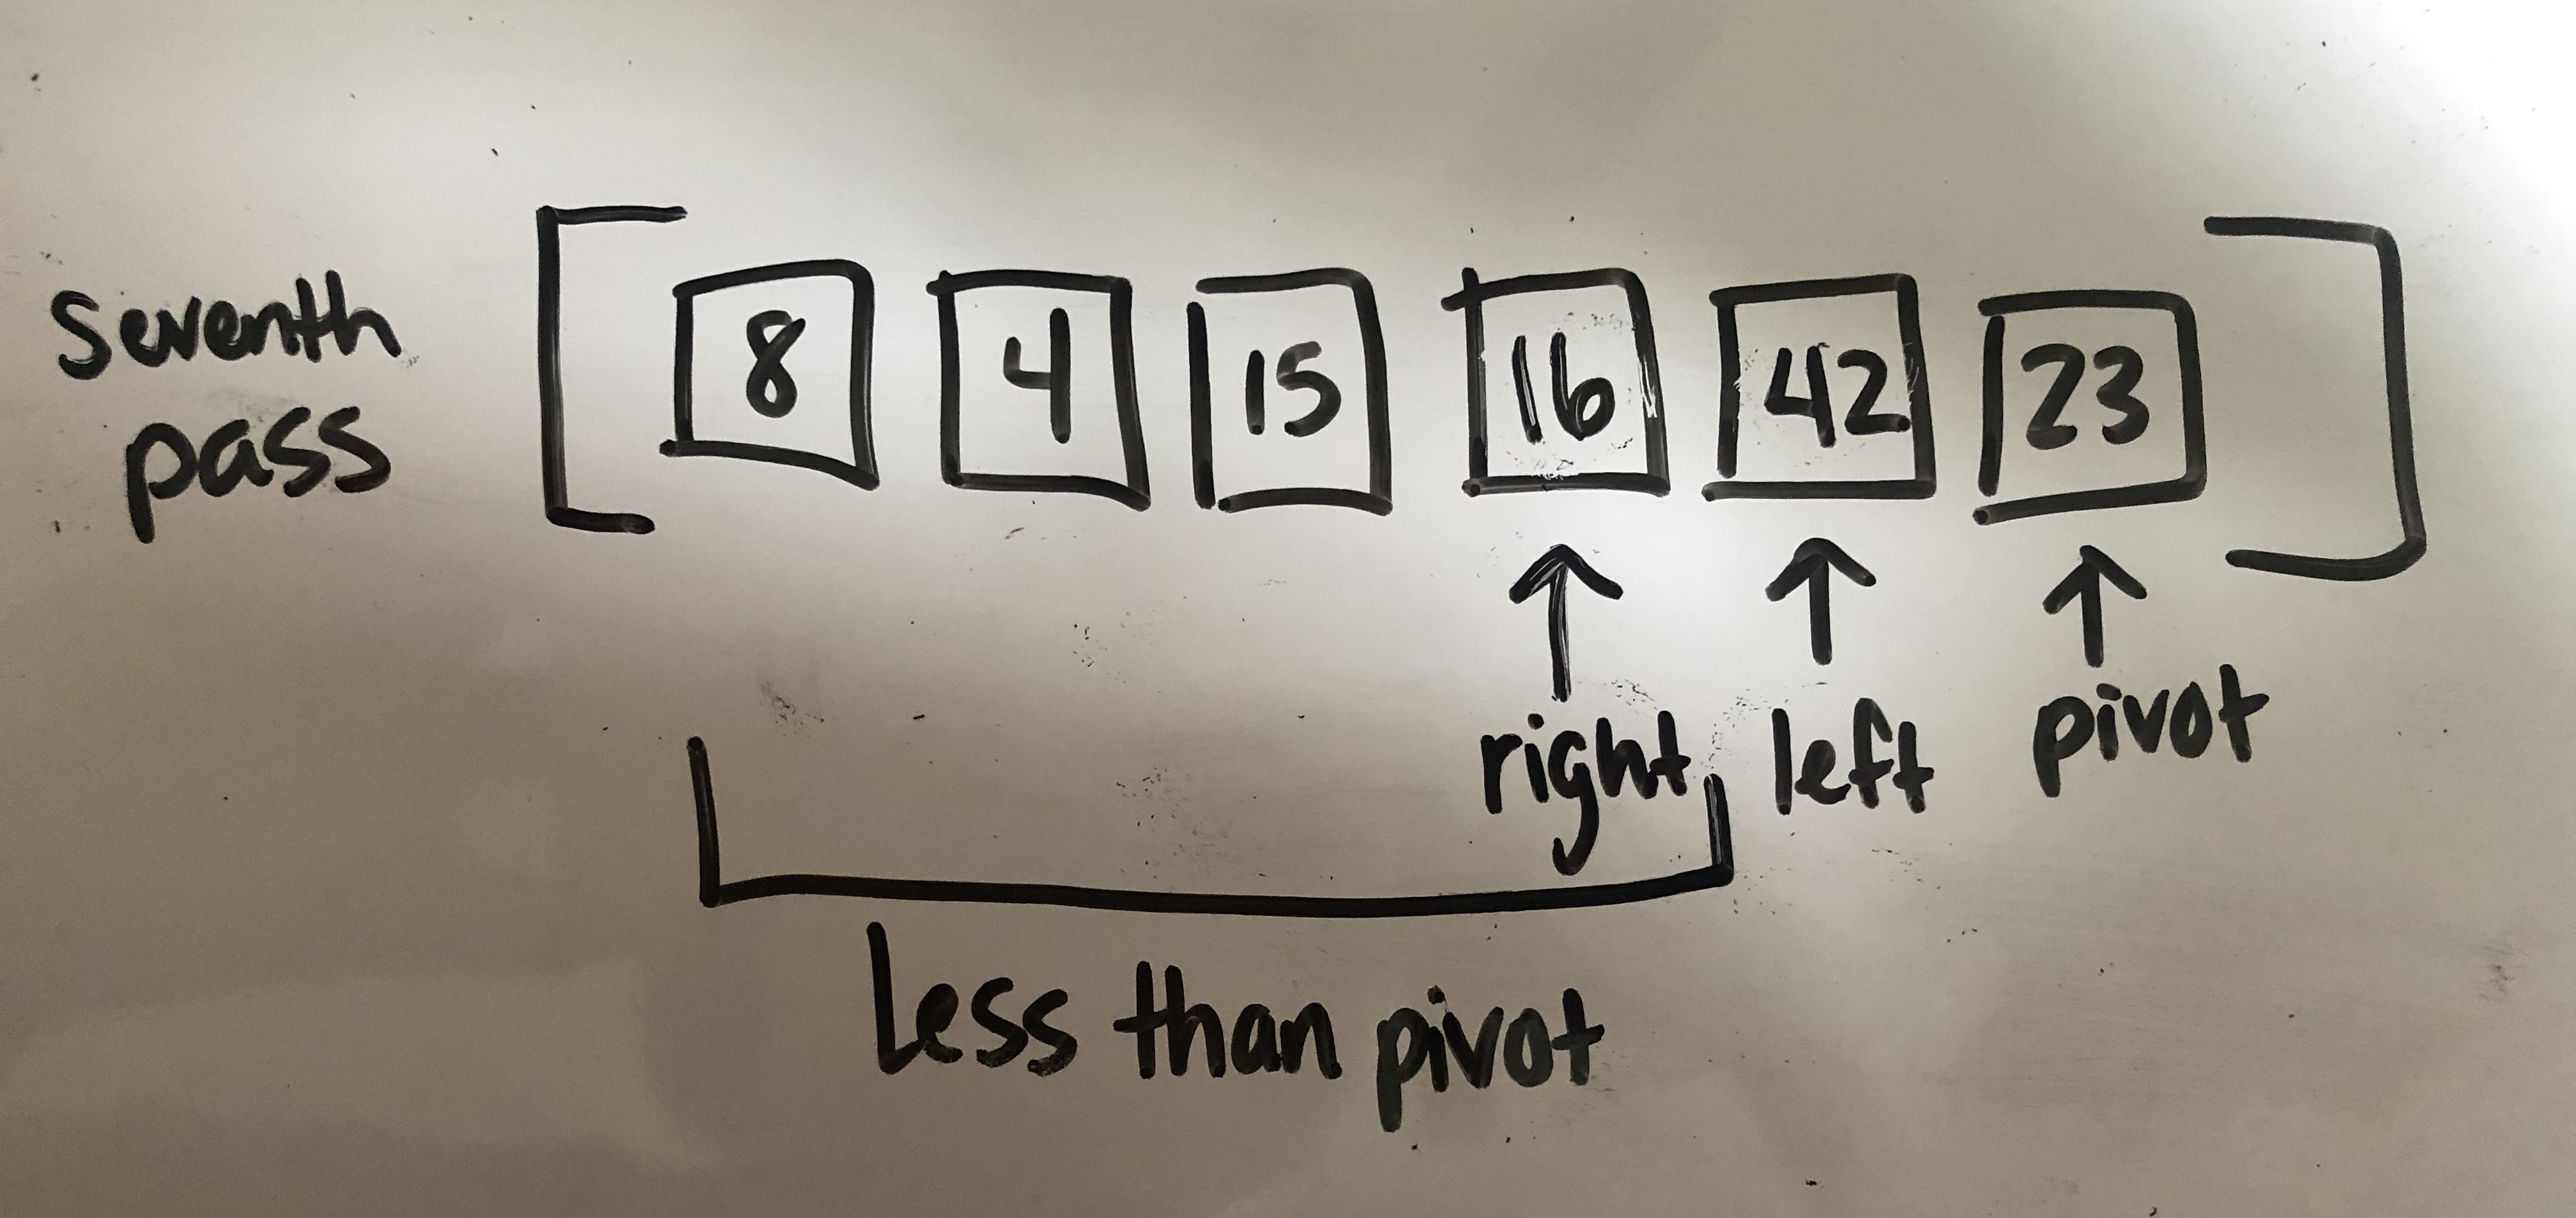 Seventh
pass
[ 8 4 15 16 42 23 ]
right left pivot
Less than pivot